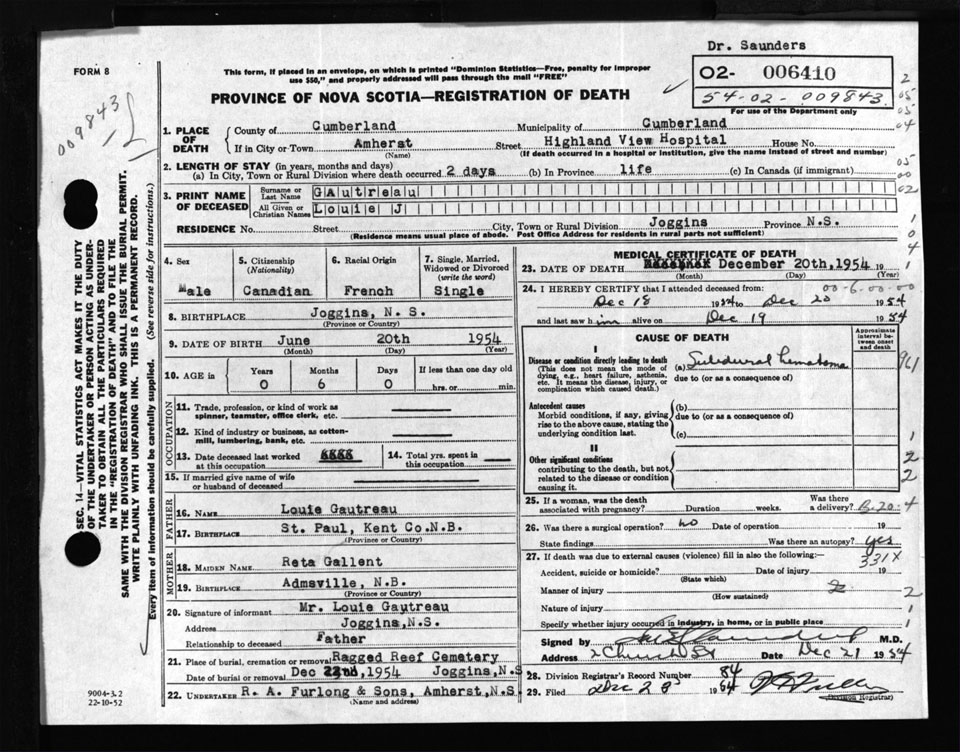 Dr. Saunders
FORM 8
This form, if placed in an envelope, on which is printed "Dominion Statistics—Free, penalty for improper
use $50," and properly addressed will pass through the mail "FREE"
02- 006410
54-02-009843
For use of the Department only
PROVINCE OF NOVA SCOTIA—REGISTRATION OF DEATH
009843
1. PLACE OF DEATH
County of Cumberland Municipality of Cumberland
If in City or Town Amherst Street Highland View Hospital House No.
(Name) (If death occurred in a hospital or institution, give the name instead of street and number)
2. LENGTH OF STAY (in years, months and days)
(a) In City, Town or Rural Division where death occurred 2 days (b) In Province life (c) In Canada (if immigrant)
3. PRINT NAME OF DECEASED
Surname or Last Name GAutreau
All Given or Christian Names Louie J
RESIDENCE No. Street City, Town or Rural Division Joggins Province N.S.
(Residence means usual place of abode. Post Office Address for residents in rural parts not sufficient)
SEC. 14—VITAL STATISTICS ACT MAKES IT THE DUTY
OF THE UNDERTAKER OR PERSON ACTING AS UNDER-
TAKER TO OBTAIN ALL THE PARTICULARS REQUIRED
IN THE "REGISTRATION OF DEATH" AND TO FILE THE
SAME WITH THE DIVISION REGISTRAR WHO SHALL ISSUE THE BURIAL PERMIT.
WRITE PLAINLY WITH UNFADING INK. THIS IS A PERMANENT RECORD.
Every item of information should be carefully supplied. (See reverse side for instructions.)
4. Sex
Male
5. Citizenship
(Nationality)
Canadian
6. Racial Origin
French
7. Single, Married,
Widowed or Divorced
(write the word)
Single
8. BIRTHPLACE Joggins, N. S.
(Province or Country)
9. DATE OF BIRTH June 20th 1954
(Month) (Day) (Year)
10. AGE in Years Months Days If less than one day old
0 6 0 hrs. or min.
OCCUPATION
11. Trade, profession, or kind of work as
spinner, teamster, office clerk, etc.
12. Kind of industry or business, as cotton-
mill, lumbering, bank, etc.
13. Date deceased last worked
at this occupation
14. Total yrs. spent in
this occupation
15. If married give name of wife
or husband of deceased
FATHER
16. NAME Louie Gautreau
17. BIRTHPLACE St. Paul, Kent Co.N.B.
(Province or Country)
MOTHER
18. MAIDEN NAME Reta Gallent
19. BIRTHPLACE Admsville, N.B.
(Province or Country)
20. Signature of informant Mr. Louie Gautreau
Address Joggins, N.S.
Relationship to deceased Father
21. Place of burial, cremation or removal Ragged Reef Cemetery
Date of burial or removal Dec 22nd, 1954 Joggins, N.S
22. UNDERTAKER R. A. Furlong & Sons, Amherst, N.S.
(Name and address)
9004-3.2
22-10-52
MEDICAL CERTIFICATE OF DEATH
23. DATE OF DEATH December 20th, 1954 19
(Month) (Day) (Year)
24. I HEREBY CERTIFY that I attended deceased from: 00-6-00-00
Dec 18 1954 to Dec 20 1954
and last saw him alive on Dec 19 1954
CAUSE OF DEATH
Approximate
interval be-
tween onset
and death
I
Disease or condition directly leading to death
(This does not mean the mode of
dying, e.g., heart failure, asthenia,
etc. It means the disease, injury, or
complication which caused death.)
(a) Subdural hematoma
due to (or as a consequence of)
Antecedent causes
Morbid conditions, if any, giving
rise to the above cause, stating the
underlying condition last.
(b)
due to (or as a consequence of)
(c)
II
Other significant conditions
contributing to the death, but not
related to the disease or condition
causing it.
25. If a woman, was the death
associated with pregnancy? Duration weeks. Was there
a delivery?
26. Was there a surgical operation? no Date of operation 19
State findings Was there an autopsy? yes
27. If death was due to external causes (violence) fill in also the following:— 331X
Accident, suicide or homicide? Date of injury 19
(State which)
Manner of injury
(How sustained)
Nature of injury
Specify whether injury occurred in industry, in home, or in public place
Signed by M.D.
Address Church St Date Dec 21 1954
28. Division Registrar's Record Number 84
29. Filed Dec 28 1954
(Division Registrar)
2
05
05
04
05
00
02
1
0
4
1
961
1
2
2
4
2
1
1